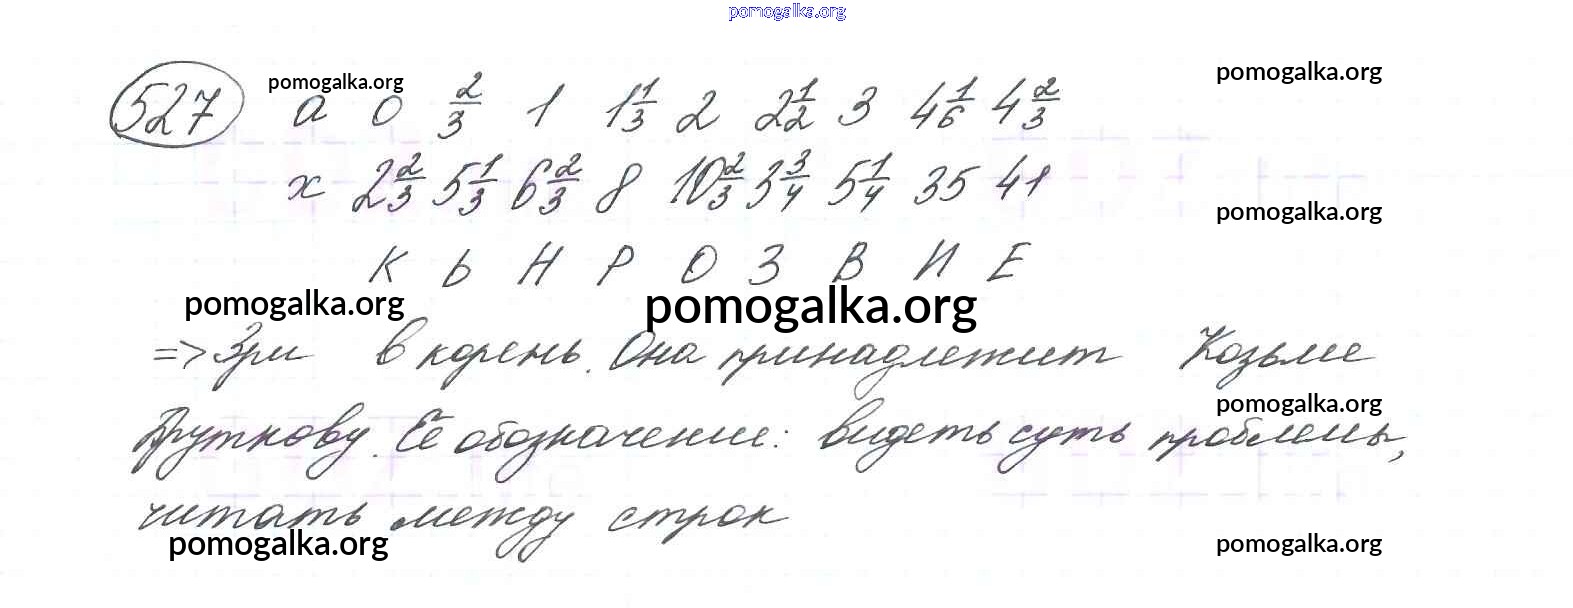 pomogalka.org
pomogalka.org
pomogalka.org
527 a 0 2/3 1 1 1/3 2 2 1/2 3 4 1/6 4 2/3
x 2 2/3 5 1/3 6 2/3 8 10 2/3 3 3/4 5 1/4 35 41
pomogalka.org
К Ь Н Р О З В И Е
pomogalka.org
pomogalka.org
=> Зри в корень. Она принадлежит Козьме
pomogalka.org
Пруткову. Её обозначение: видеть суть проблемы,
читать между строк
pomogalka.org
pomogalka.org